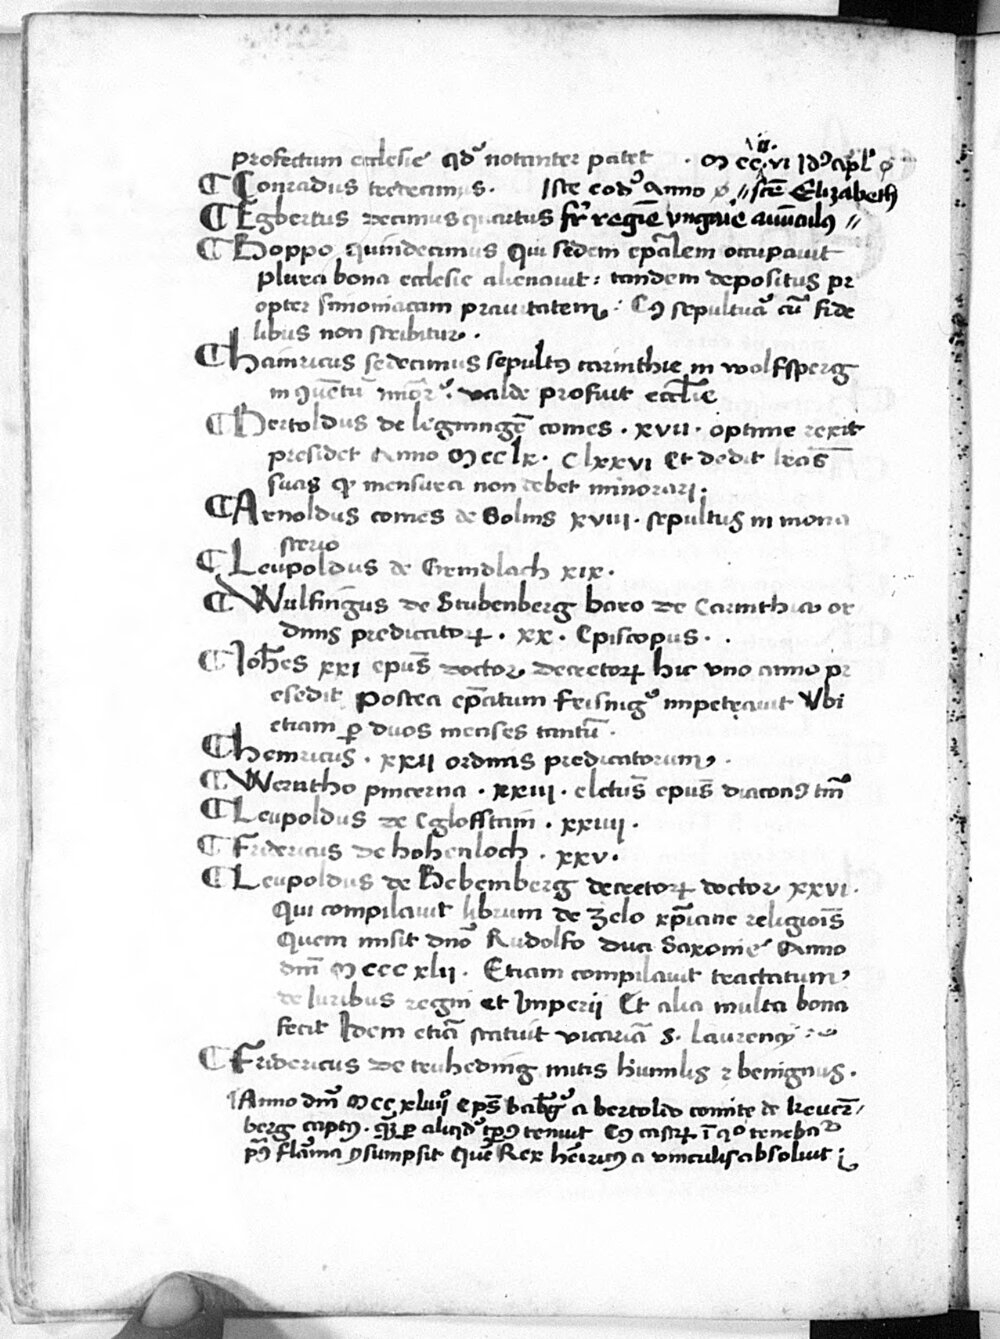 profectum ecclesie qd' notanter patet . M cc vi Id' ap'l'
¶ Conradus tredecimus . Iste eod' anno // sc̄e Elizabeth
¶ Egbertus decimus quartus fr' regīe vngarie auūculus //
¶ Poppo quindecimus Qui sedem ep̄alem occupauit
plura bona ecclesie alienauit : tandem depositus pr
opter simoniacam prauitatem . Cꝰ sepultura cū fide
libus non scribitur .
¶ hainricus sedecimus sepultꝰ carinthie in wolfsperg
in ꝯuētu mīor' . valde profuit eccl̄ie
¶ Bertoldus de leginngē comes . xvii . optime rexit
presidet Anno Mcclx . Clxxvi Et dedit lr̄as
suas qꝰ mensura non debet minorari .
¶ Arnoldus comes de Solms xviii . sepultus in mona
sterio
¶ Leupoldus de Grindlach xix .
¶ Wulfingus de Stubenberg baro de Carinthia or
dinis predicatoꝝ . xx . Episcopus .
¶ Ioh̄es xxi ep̄us doctor decretoꝝ hic vno anno pr
esedit postea ep̄atum frising' impetrauit Vbi
etiam ꝑ duos menses tantū .
¶ heinricus . xxii ordinis predicatorum .
¶ Werntho pincerna . xxiii . elctus ep̄us diaconꝰ tm̄
¶ Leupoldus de Egloffstain . xxiiii .
¶ Fridericus de hohenloch . xxv .
¶ Leupoldus de Bebemberg decretoꝝ doctor xxvi .
Qui compilauit librum de zelo xp̄iane religiōis
Quem misit dn̄o Rudolfo duci Saxonie Anno
dn̄i M ccc xlii . Etiam compilauit tractatum
de Iuribus regni et Imperii Et alia multa bona
fecit Idem etiā statuit vicariā S . Laurencij
¶ Fridericus de truheding mitis humilis ⁊ benignus .
Anno dn̄i M cc xlvii ep̄s bab̄g' a bertoldo comite de
berg captꝰ . ꝑ aliqd' tp̄ꝰ tenuit Cꝰ castꝝ ī qo teneba
pꝰ flāma ꝯsumpsit Quē Rex hēricꝰ a vinculis absoluit